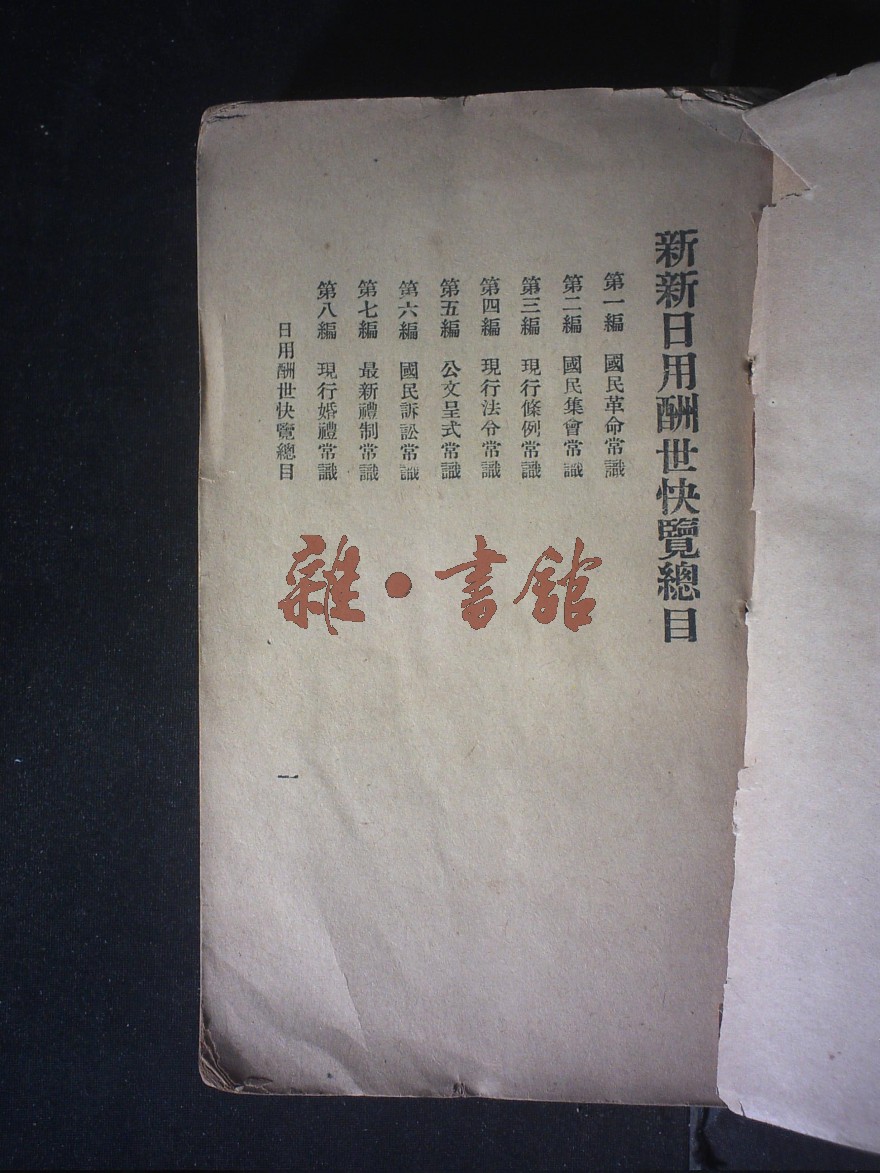 新新日用酬世快覽總目
第一編 國民革命常識
第二編 國民集會常識
第三編 現行條例常識
第四編 現行法令常識
第五編 公文呈式常識
第六編 國民訴訟常識
第七編 最新禮制常識
第八編 現行婚禮常識
日用酬世快覽總目 一
雜·書館